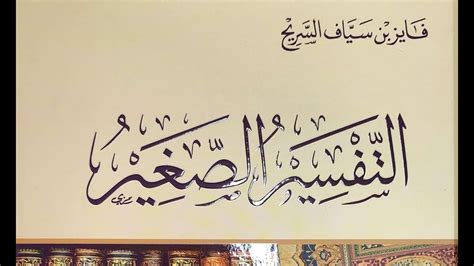 فَايز بن سَيَّاف السَّريح
التَّفْسِيرُ الصَّغِيرُ